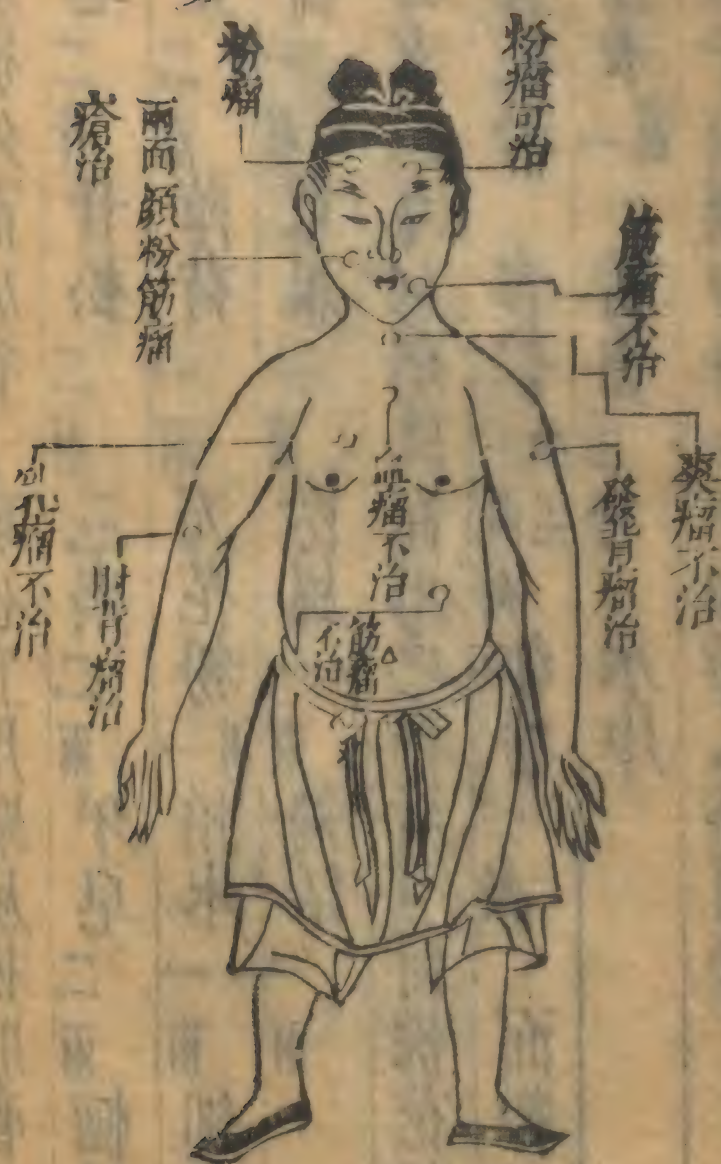 粉瘤可治
粉瘤
兩面顏粉筋瘤
瘡治
筋瘤不治
爽瘤不治
發背瘤治
血瘤不治
筋瘤
不治
乳瘤不治
肘背瘤治